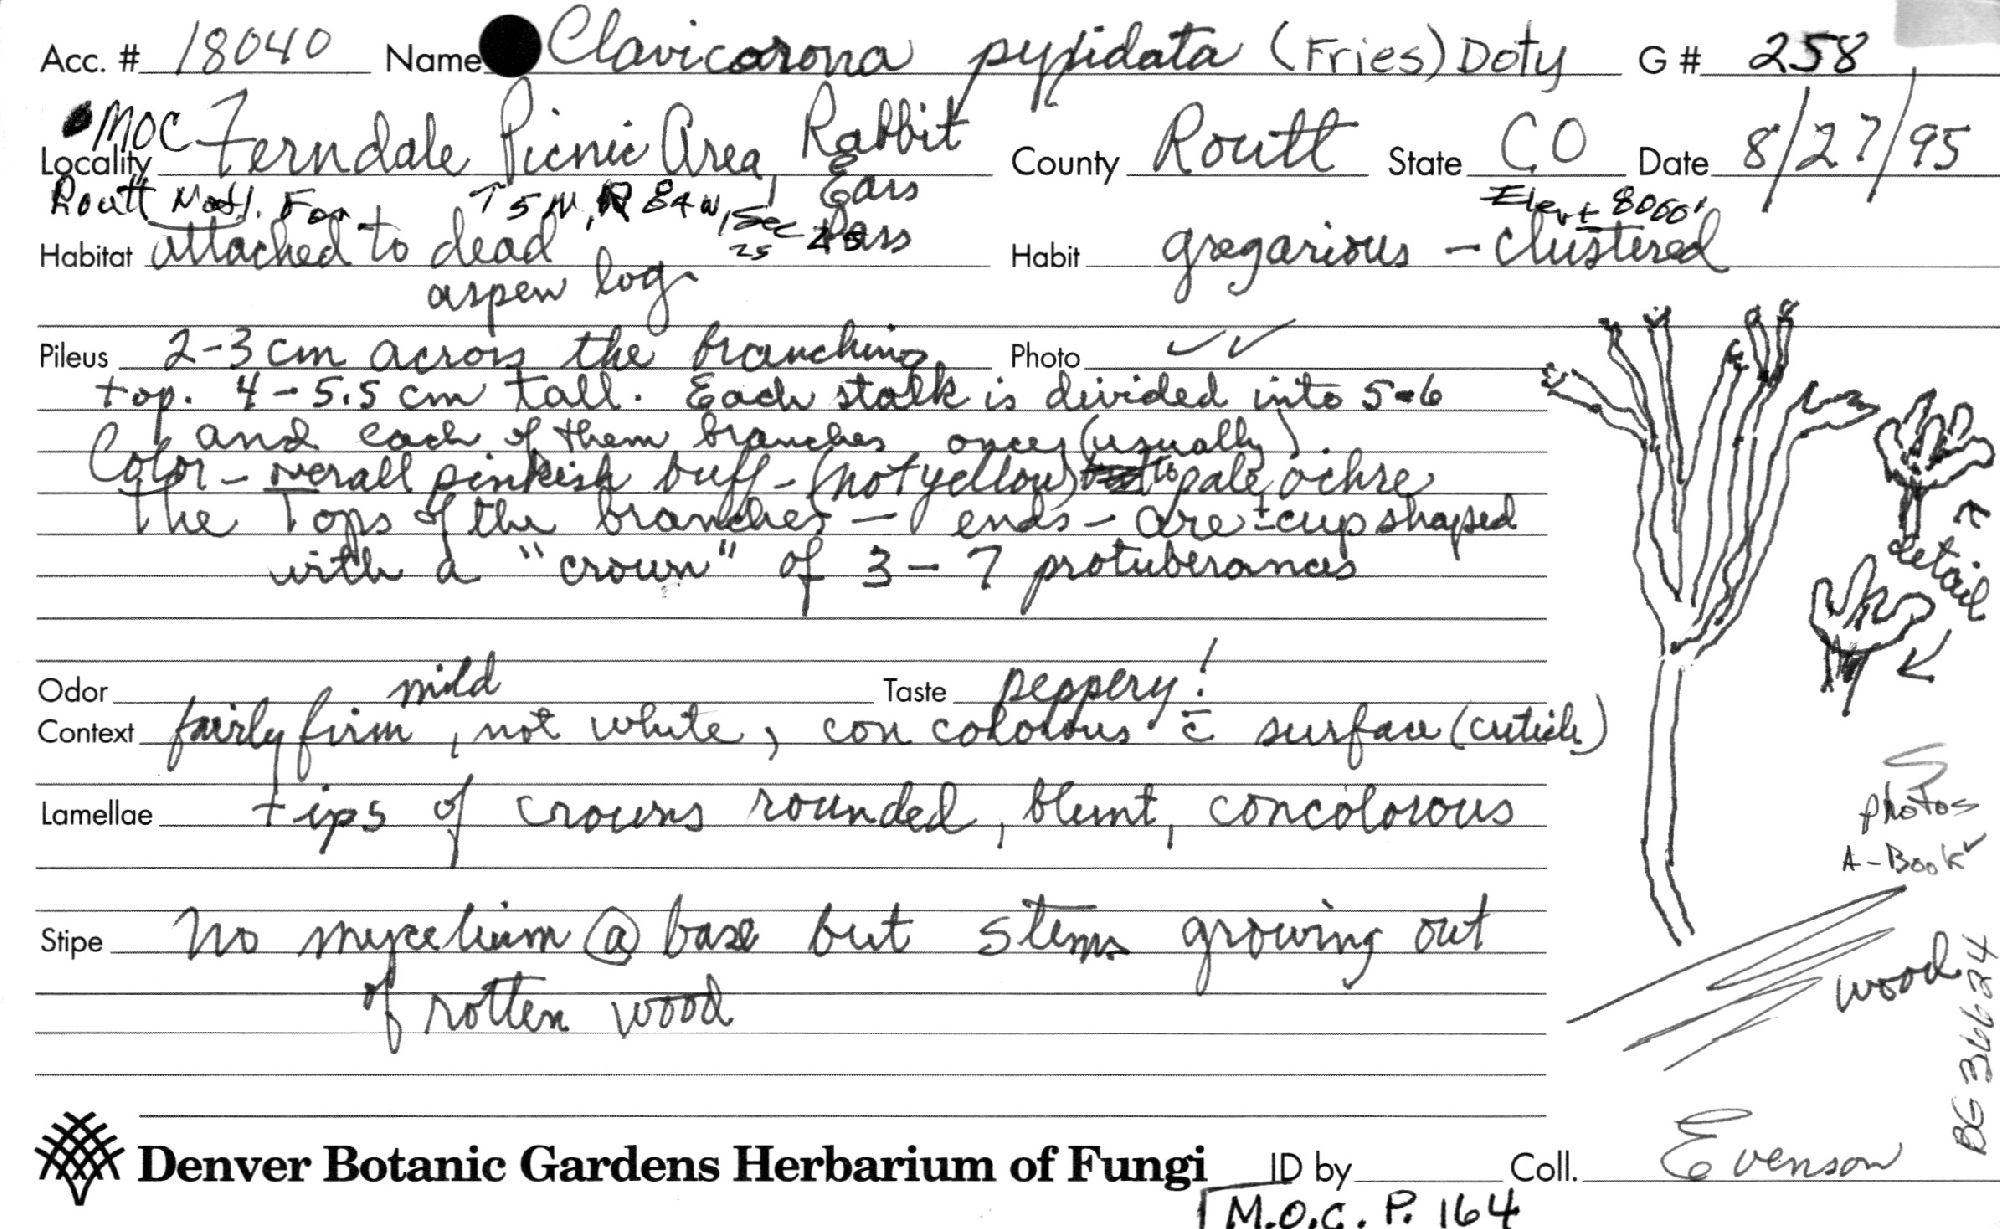 Acc. # 18040 Name Clavicorona pyxidata (Fries) Doty G # 258
MOC
Locality Ferndale Picnic Area, Rabbit Ears Pass County Routt State CO Date 8/27/95
Routt Natl. For T5N, R84W, Sec 25 Elev ± 8000'
Habitat attached to dead aspen log Habit gregarious - clustered
Pileus 2-3 cm across the branching Photo ✓✓
top. 4-5.5 cm tall. Each stalk is divided into 5-6
and each of them branches once (usually).
Color - overall pinkish buff - (not yellow) to pale ochre
The Tops of the branches - ends - are ± cup shaped
with a "crown" of 3-7 protuberances
detail
Odor mild Taste peppery!
Context fairly firm, not white, concolorous c̄ surface (cuticle)
Lamellae tips of crowns rounded, blunt, concolorous
photos
A-Book ✓
Stipe No mycelium @ base but stems growing out
of rotten wood
wood
BG 36624
Denver Botanic Gardens Herbarium of Fungi ID by Coll. Evenson
M.O.C. P. 164